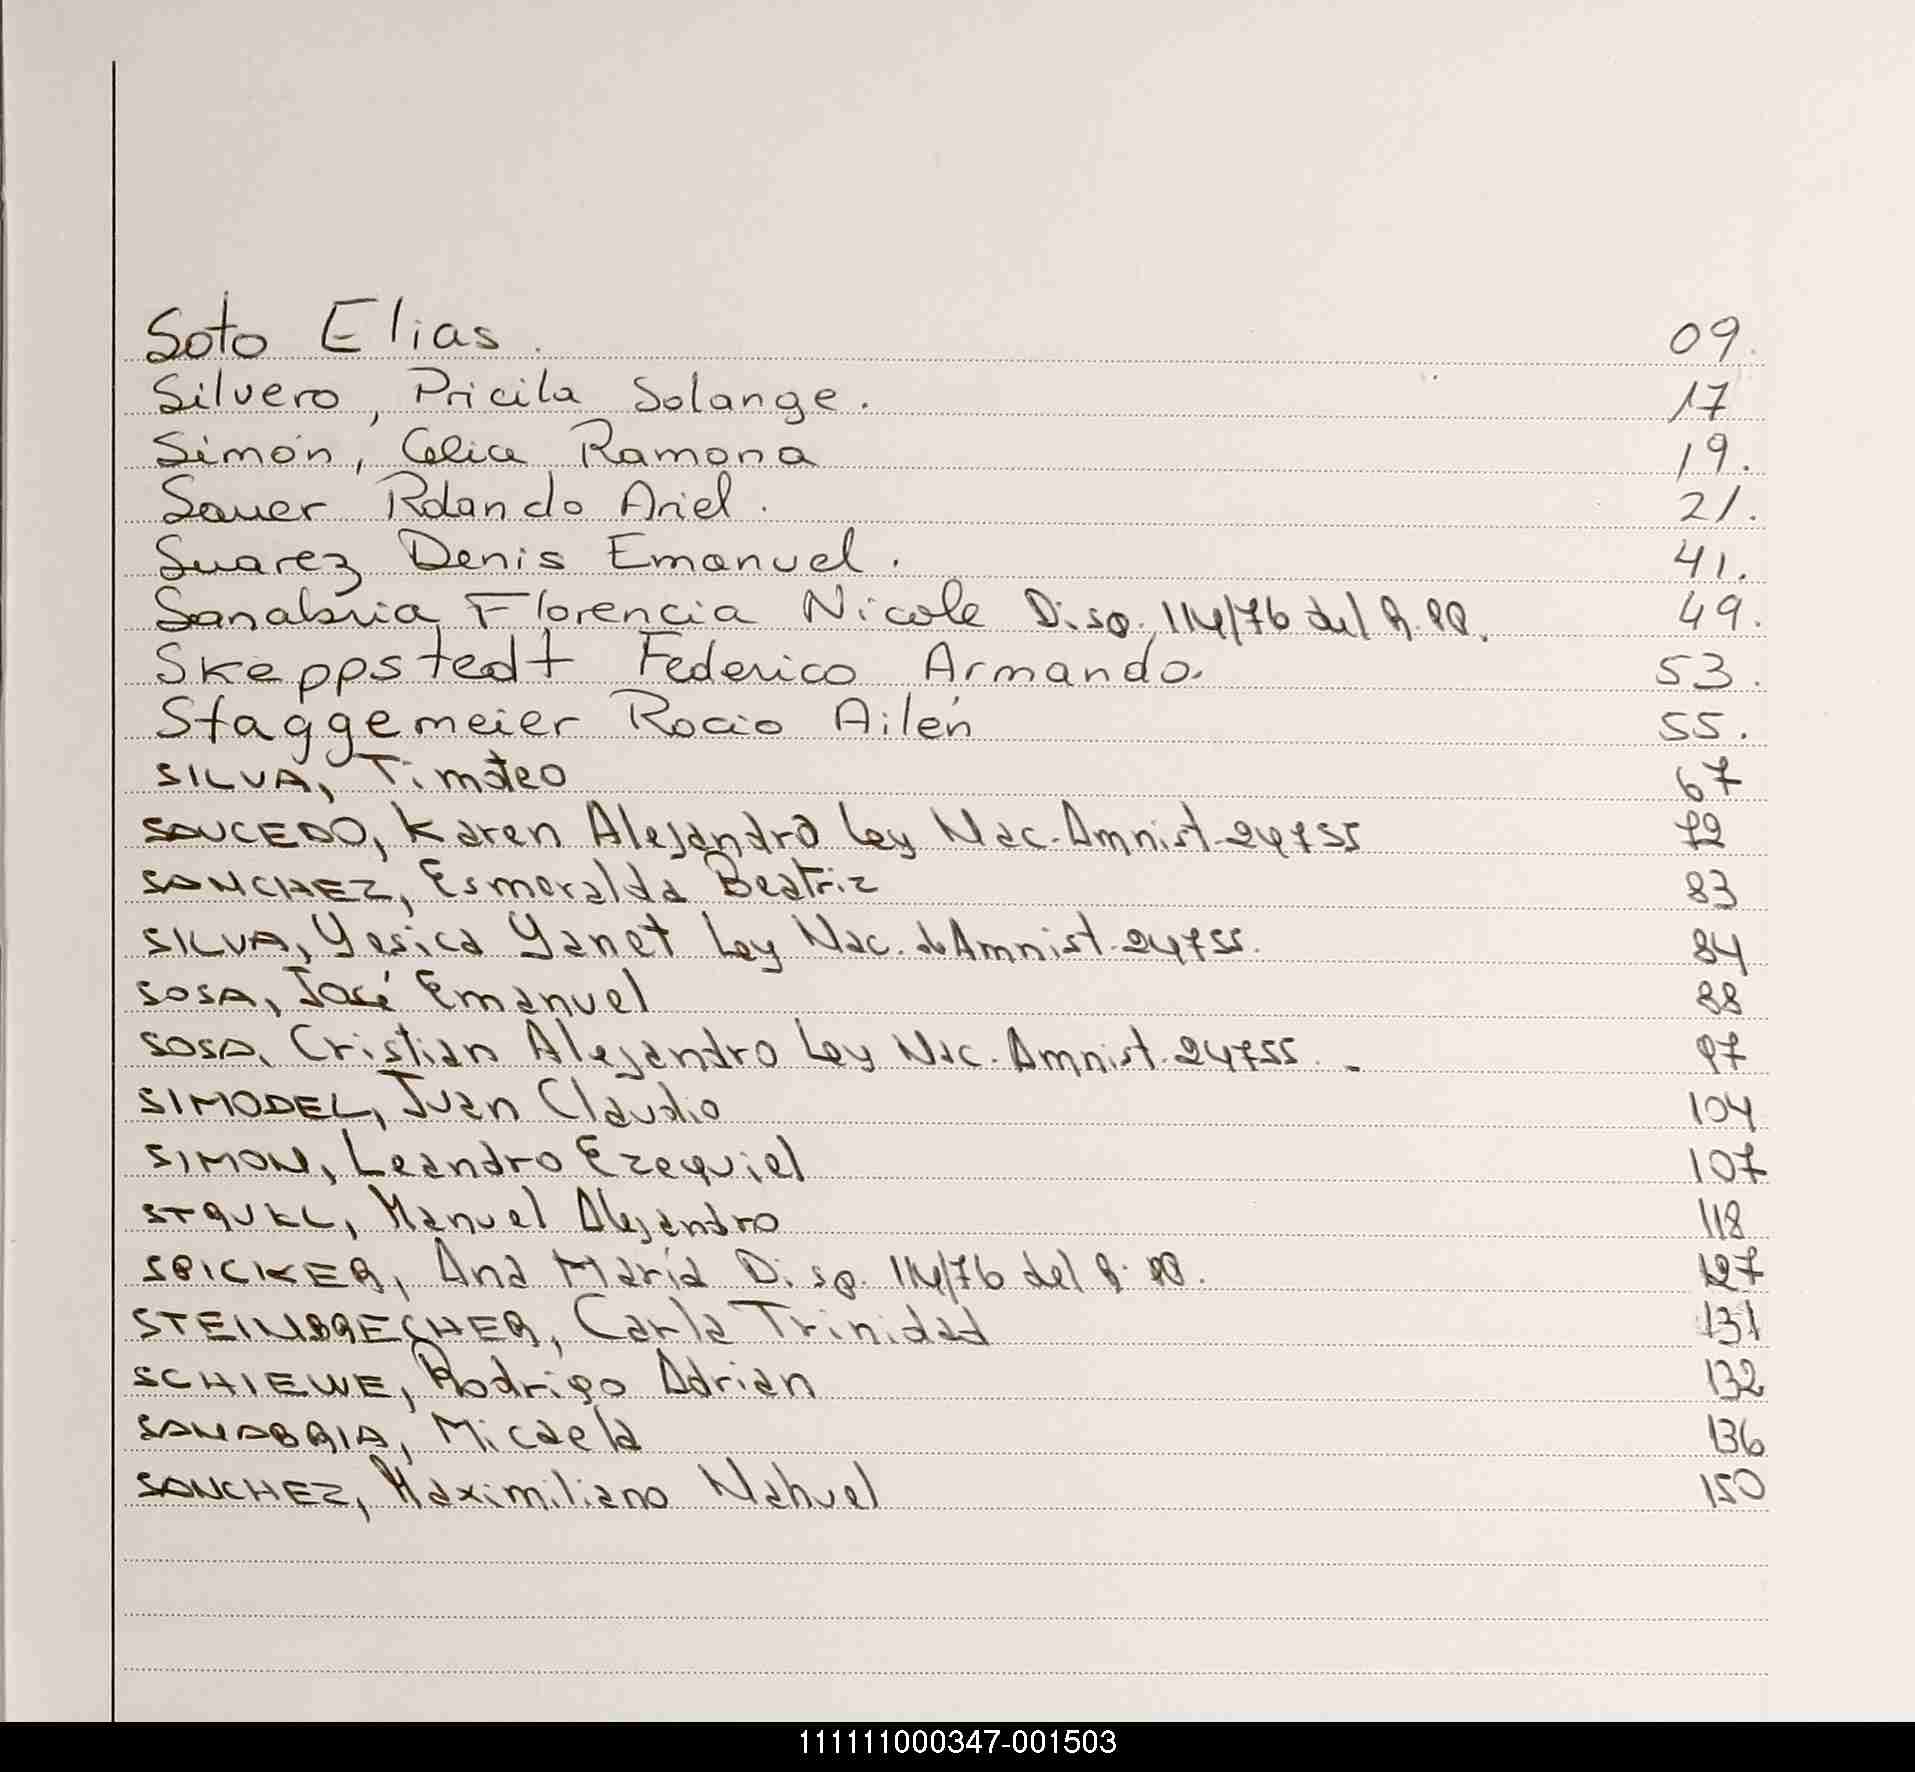 Soto Elias. 09.
Silvero, Pricila Solange. 17
Simón, Celia Ramona 19.
Sauer Rolando Ariel. 21.
Suarez Denis Emanuel. 41.
Sanabria Florencia Nicole Disp. 114/76 del R.PP. 49.
Skeppstedt Federico Armando. 53.
Staggemeier Rocio Ailén 55.
SILVA, Timoteo 67
SAUCEDO, Karen Alejandra Ley Nac. Amnist. 24755 72
SANCHEZ, Esmeralda Beatriz 83
SILVA, Yesica Yanet Ley Nac. de Amnist. 24755. 84
SOSA, José Emanuel 88
SOSA, Cristian Alejandro Ley Nac. Amnist. 24755. 97
SIMODEL, Juan Claudio 104
SIMON, Leandro Ezequiel 107
Manuel Alejandro 118
SPICKER, Ana María Disp. 114/76 del R.PP. 127
STEINBRECHER, Carla Trinidad 131
SCHIEWE, Rodrigo Adrian 132
SANABRIA, Micaela 136
SANCHEZ, Maximiliano Nahuel 150
111111000347-001503